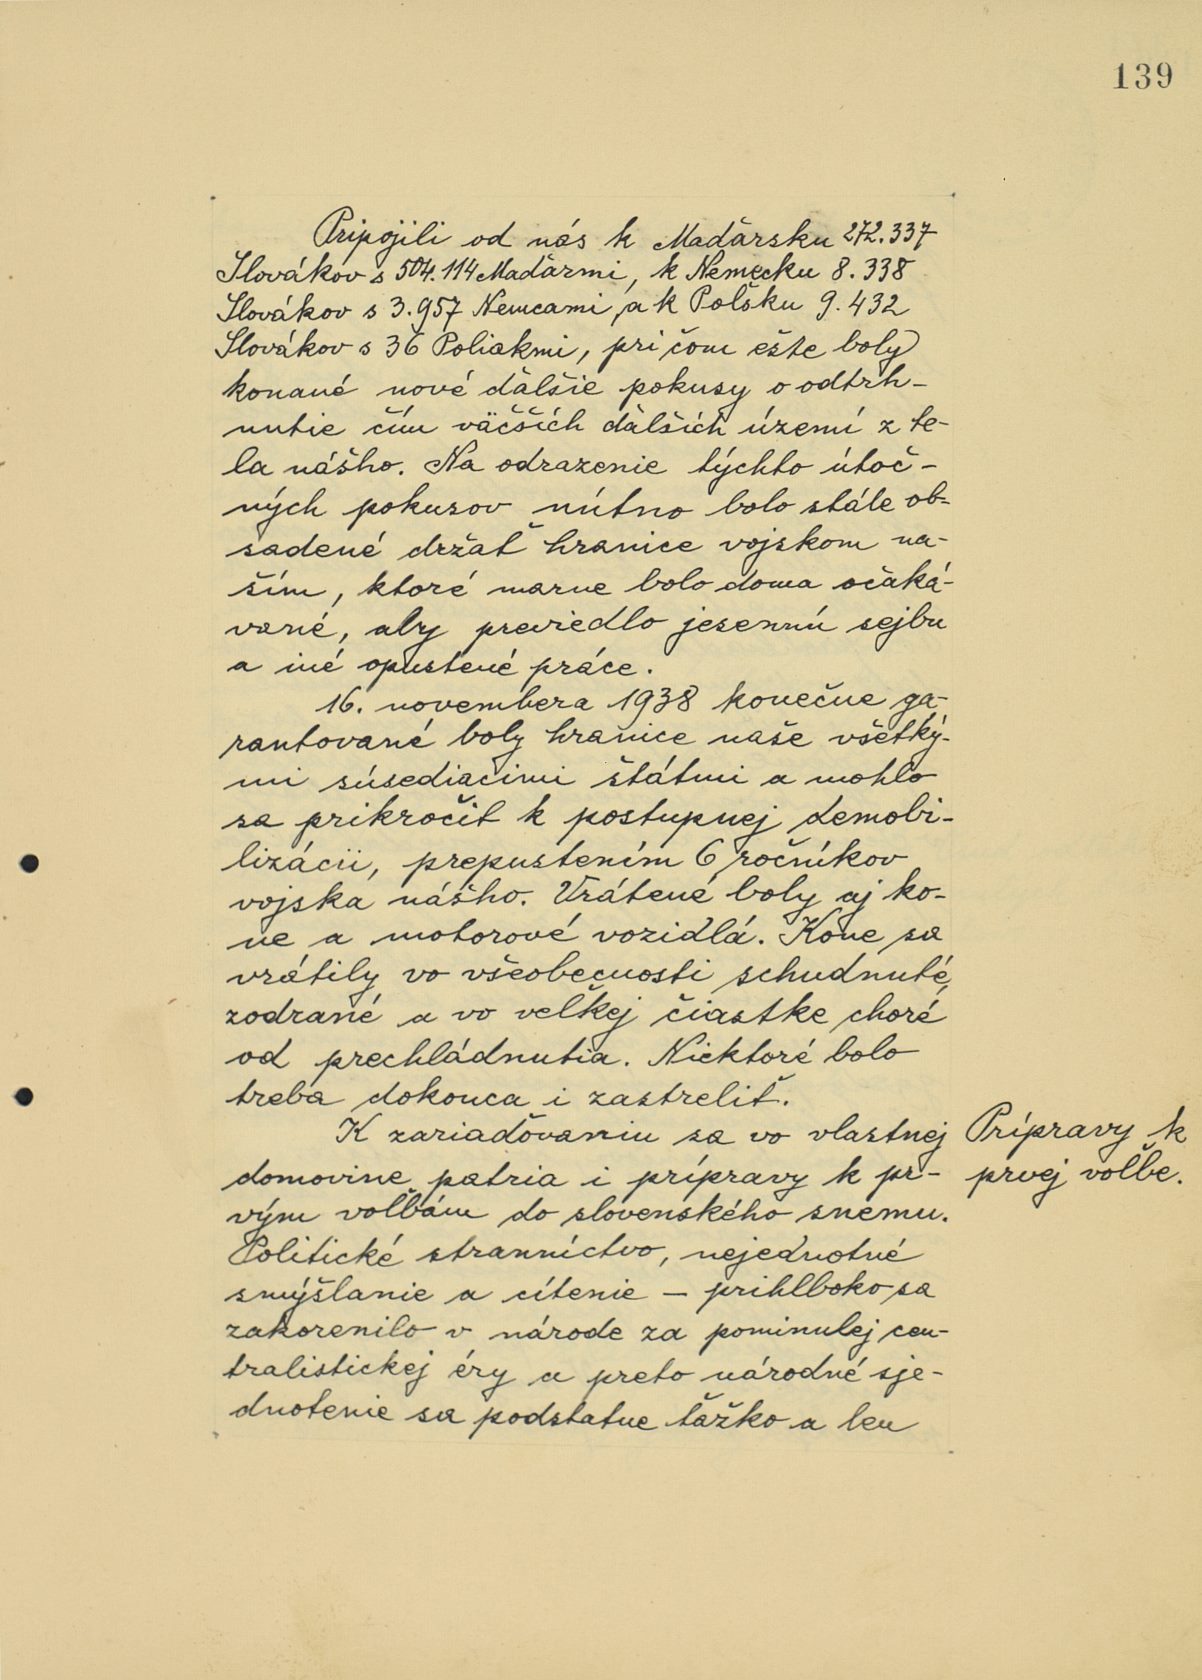 139
Pripojili od nás k Maďarsku 272.337
Slovákov s 504.114 Maďarmi, k Nemecku 8.338
Slovákov s 3.957 Nemcami, a k Poľsku 9.432
Slovákov s 36 Poliakmi, pri čom ešte boly
konané nové ďalšie pokusy o odtrh-
nutie čím väčších ďalších území z te-
la nášho. Na odrazenie týchto útoč-
ných pokusov nútno bolo stále ob-
sadené držať hranice vojskom na-
ším, ktoré marne bolo doma očaká-
vané, aby previedlo jesennú sejbu
a iné opustené práce.
16. novembera 1938 konečne ga-
rantované boly hranice naše všetký-
mi súsediacimi štátmi a mohlo
sa prikročiť k postupnej demobi-
lizácii, prepustením 6 ročníkov
vojska nášho. Vrátené boly aj ko-
ne a motorové vozidlá. Kone sa
vrátily vo všeobecnosti schudnuté,
zodrané a vo veľkej čiastke choré
od prechládnutia. Niektoré bolo
treba dokonca i zastreliť.
K zariaďovaniu sa vo vlastnej
domovine patria i prípravy k pr-
vým voľbám do slovenského snemu.
Politické stranníctvo, nejednotné
smýšlanie a cítenie — prihlboko sa
zakorenilo v národe za pominulej cen-
tralistickej éry a preto národné sje-
dnotenie sa podstatne ťažko a len
Prípravy k
prvej voľbe.